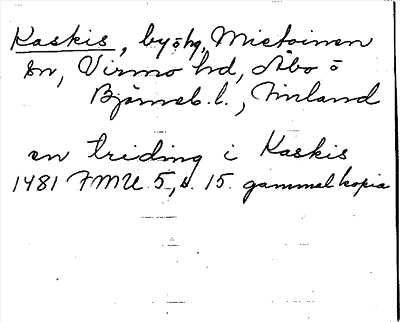 Kaskis, by o hg, Mietoinen
sn, Virmo hd, Åbo o
Björneb. l., Finland
en triding i Kaskis
1481 FMU 5, s. 15. gammal kopia